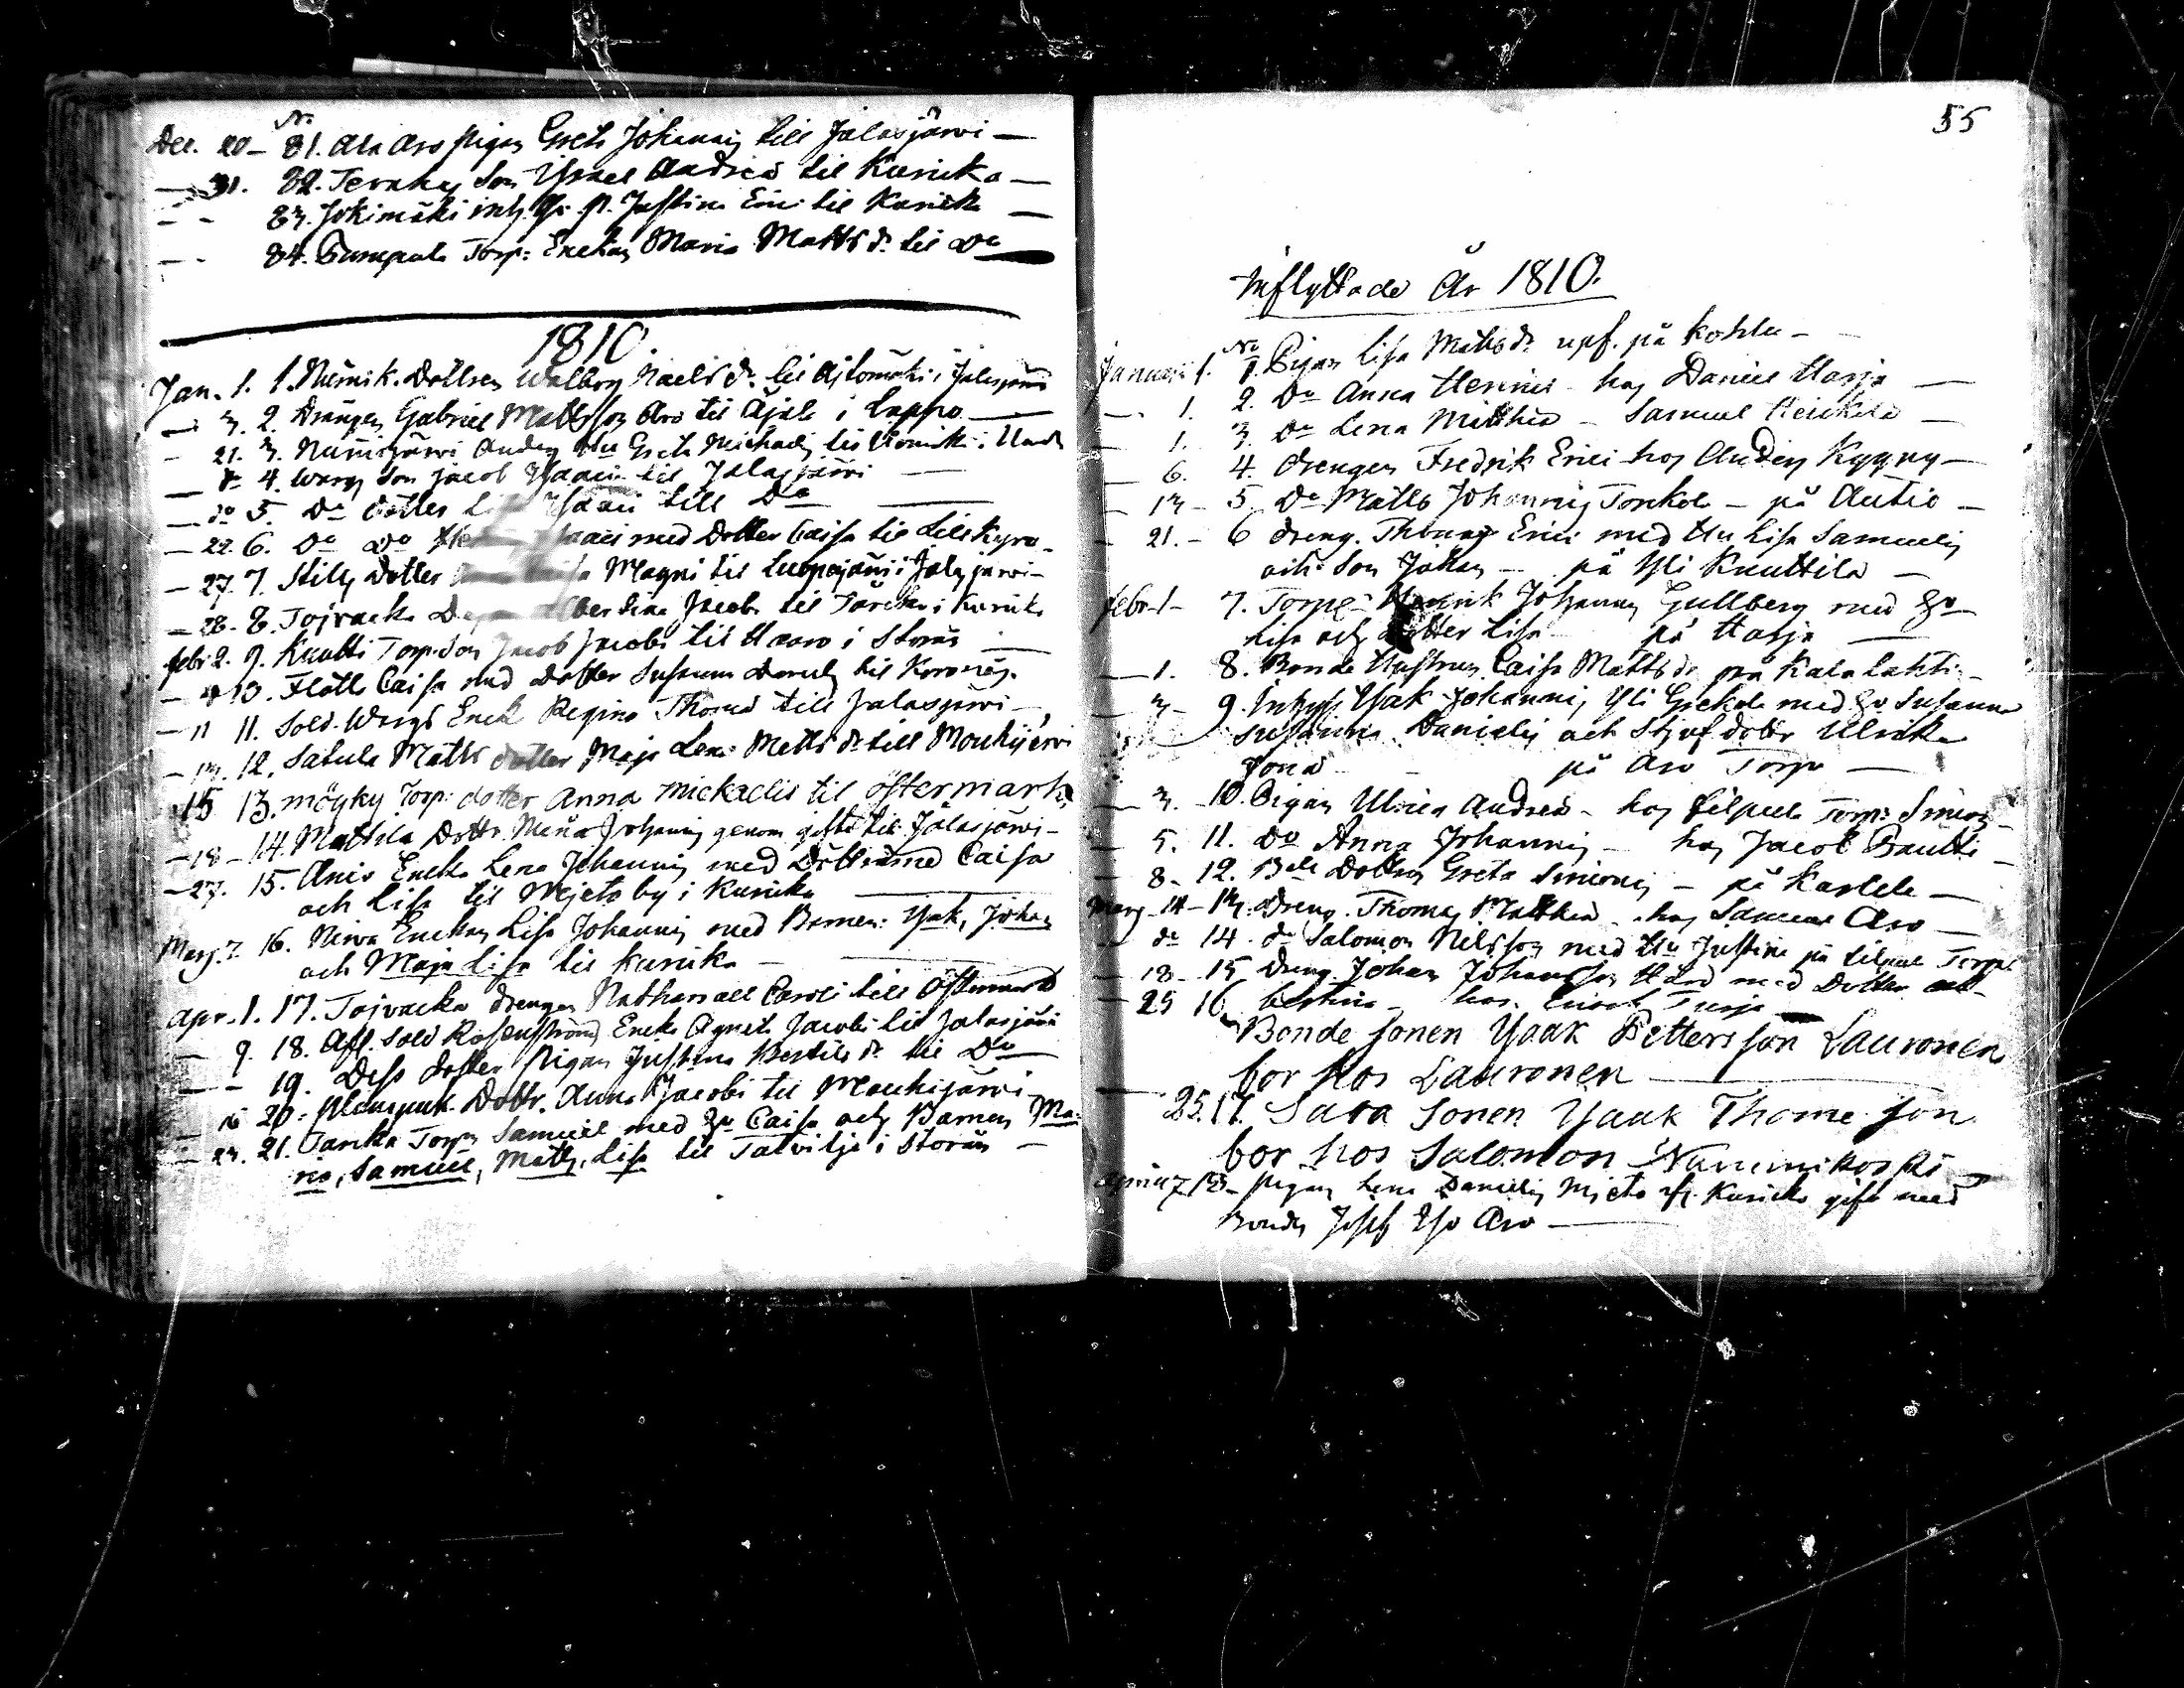 No
Dec. 20 - 81. Ala Aro pigan Greta Johannis till Jalasjärvi -
- 31. 82. Tervahaj Son Israel Andreæ til Kuricka -
- - 83. Jokimäki inh. Justina Eric til Kuricka -
- - 84. Torp: Enckan Maria Matts dr til Do
1810
Jan. 1. 1. Nümik. Dottren Walborg Noels dr til Ajlomäki i Jalasjärvi
- 3. 2. Drängen Gabriel Mattsson Aro til Äjälä i Lappo -
- 21. 3. Nümijärvi Anders Hu Greta Michaelis til i
- do 4. Wargs Son Jacob Isaaci til Jalasjärvi -
- do 5. Do dotter Lisa Isaaci till Do -
- 22. 6. Do Do Isaaci med Dotter Caisa til Lillkyro -
- 27. 7. Stills Dotter Magni til Luopajärvi i Jalasjärvi -
- 28. 8. Tojvacka Albertina Jacobi til i Kuricka
febr 2. 9. Knutti Torp. Son Jacob Jacobi til Harro i Storås
- 4 10. Flätts Caisa med Dotter Susanna Danielis til Korsnäs.
- 11 11. Sold. Wargs Enck Regina Thomæ till Jalasjärvi -
- 13. 12. Satula Matts dotter Maja Lena Matts dr till Mouhijervi
15 13. möyky Torp: dotter Anna mickaelis til östermark
- 18 - 14. Mattila Dottr. Maria Johannis genom gifte til Jalasjärvi -
- 27. 15. Anis Encka Lena Johannis med Döttrarne Caisa
och Lisa til Mjeto by i Kuricka -
Marz. 7 16. Nirva Enckan Lisa Johannis med Barnen: Isak, Johan
och Maja Lisa til Kuricka -
Apr. 1. 17. Tojvacka Drengen Nathanael Caroli till Östermark
- 9. 18. Afl. Sold Rosenströms Encka Agneta Jacobi til Jalasjärvi
- - 19. Dess dotter Pigan Justina Bertils dr til Do
- 16 20. Dottr. Anna Jacobi til Mouhijärvi
- 23. 21. Tanka Torp Samuel med Hu Caisa och Barnen Ma-
ria, Samuel, Matts, Lisa til Talvitje i Storås -
55
Inflyttade År 1810.
No
Januari 1. 1. Pigan Lisa Matts dr upf. på Kohlu -
- 1. 2. Do Anna Henrici - hos Daniel Harja -
- 1. 3. Do Lena Matthiæ - Samuel Heickilä -
- 6. 4. Drengen Fredrik Erici hos Anders Kyyny -
- 13 - 5. Do Matts Johannis Tonkola - på Autio -
- 21. - 6 dreng. Thomas Erici med Hu Lisa Samuelis
och Son Johan - på Yli Knuttila -
febr. 1 - 7. Torp. Henrik Johannis Gullberg med Hu
Lisa och Dotter Lisa - på Harja -
- 1. 8. Bonde Hustrun Caisa Matts dr på Kala Lahti -
- 3 - 9. Inhys Isak Johannis, Yli Grekola med Hu Susanna
Susanna Danielis och Stjufdottr Ulrika
Jona - på Aro Torp -
- 3. - 10. Pigan Ulrica Andreæ - hos Filpula Torp: Simon -
- 5. 11. Do Anna Johannis - hos Jacob Pautti -
- 8 - 12. Dottren Greta Simonis - på Karlela -
Marz - 14 - 13. Dreng. Thomas Matthiæ - hos Samuel Aro -
- do 14. do Salomon Nilsson med Hu Justina på Torp:
- 18 - 15 Dreng. Johan Johansson Hård med Dotter
- 25 16 - hos
Bonde sonen Ysaak Pettersson Lauronen
bor hos Lauronen -
- 25. 17. Sara Sonen Ysaak Thome son
bor hos Salomon Nummikoski -
April 7 18 - Pigan Lena Danielis Mjeto ifr Kuricka gift med
Bonden Josef Iso Aro -